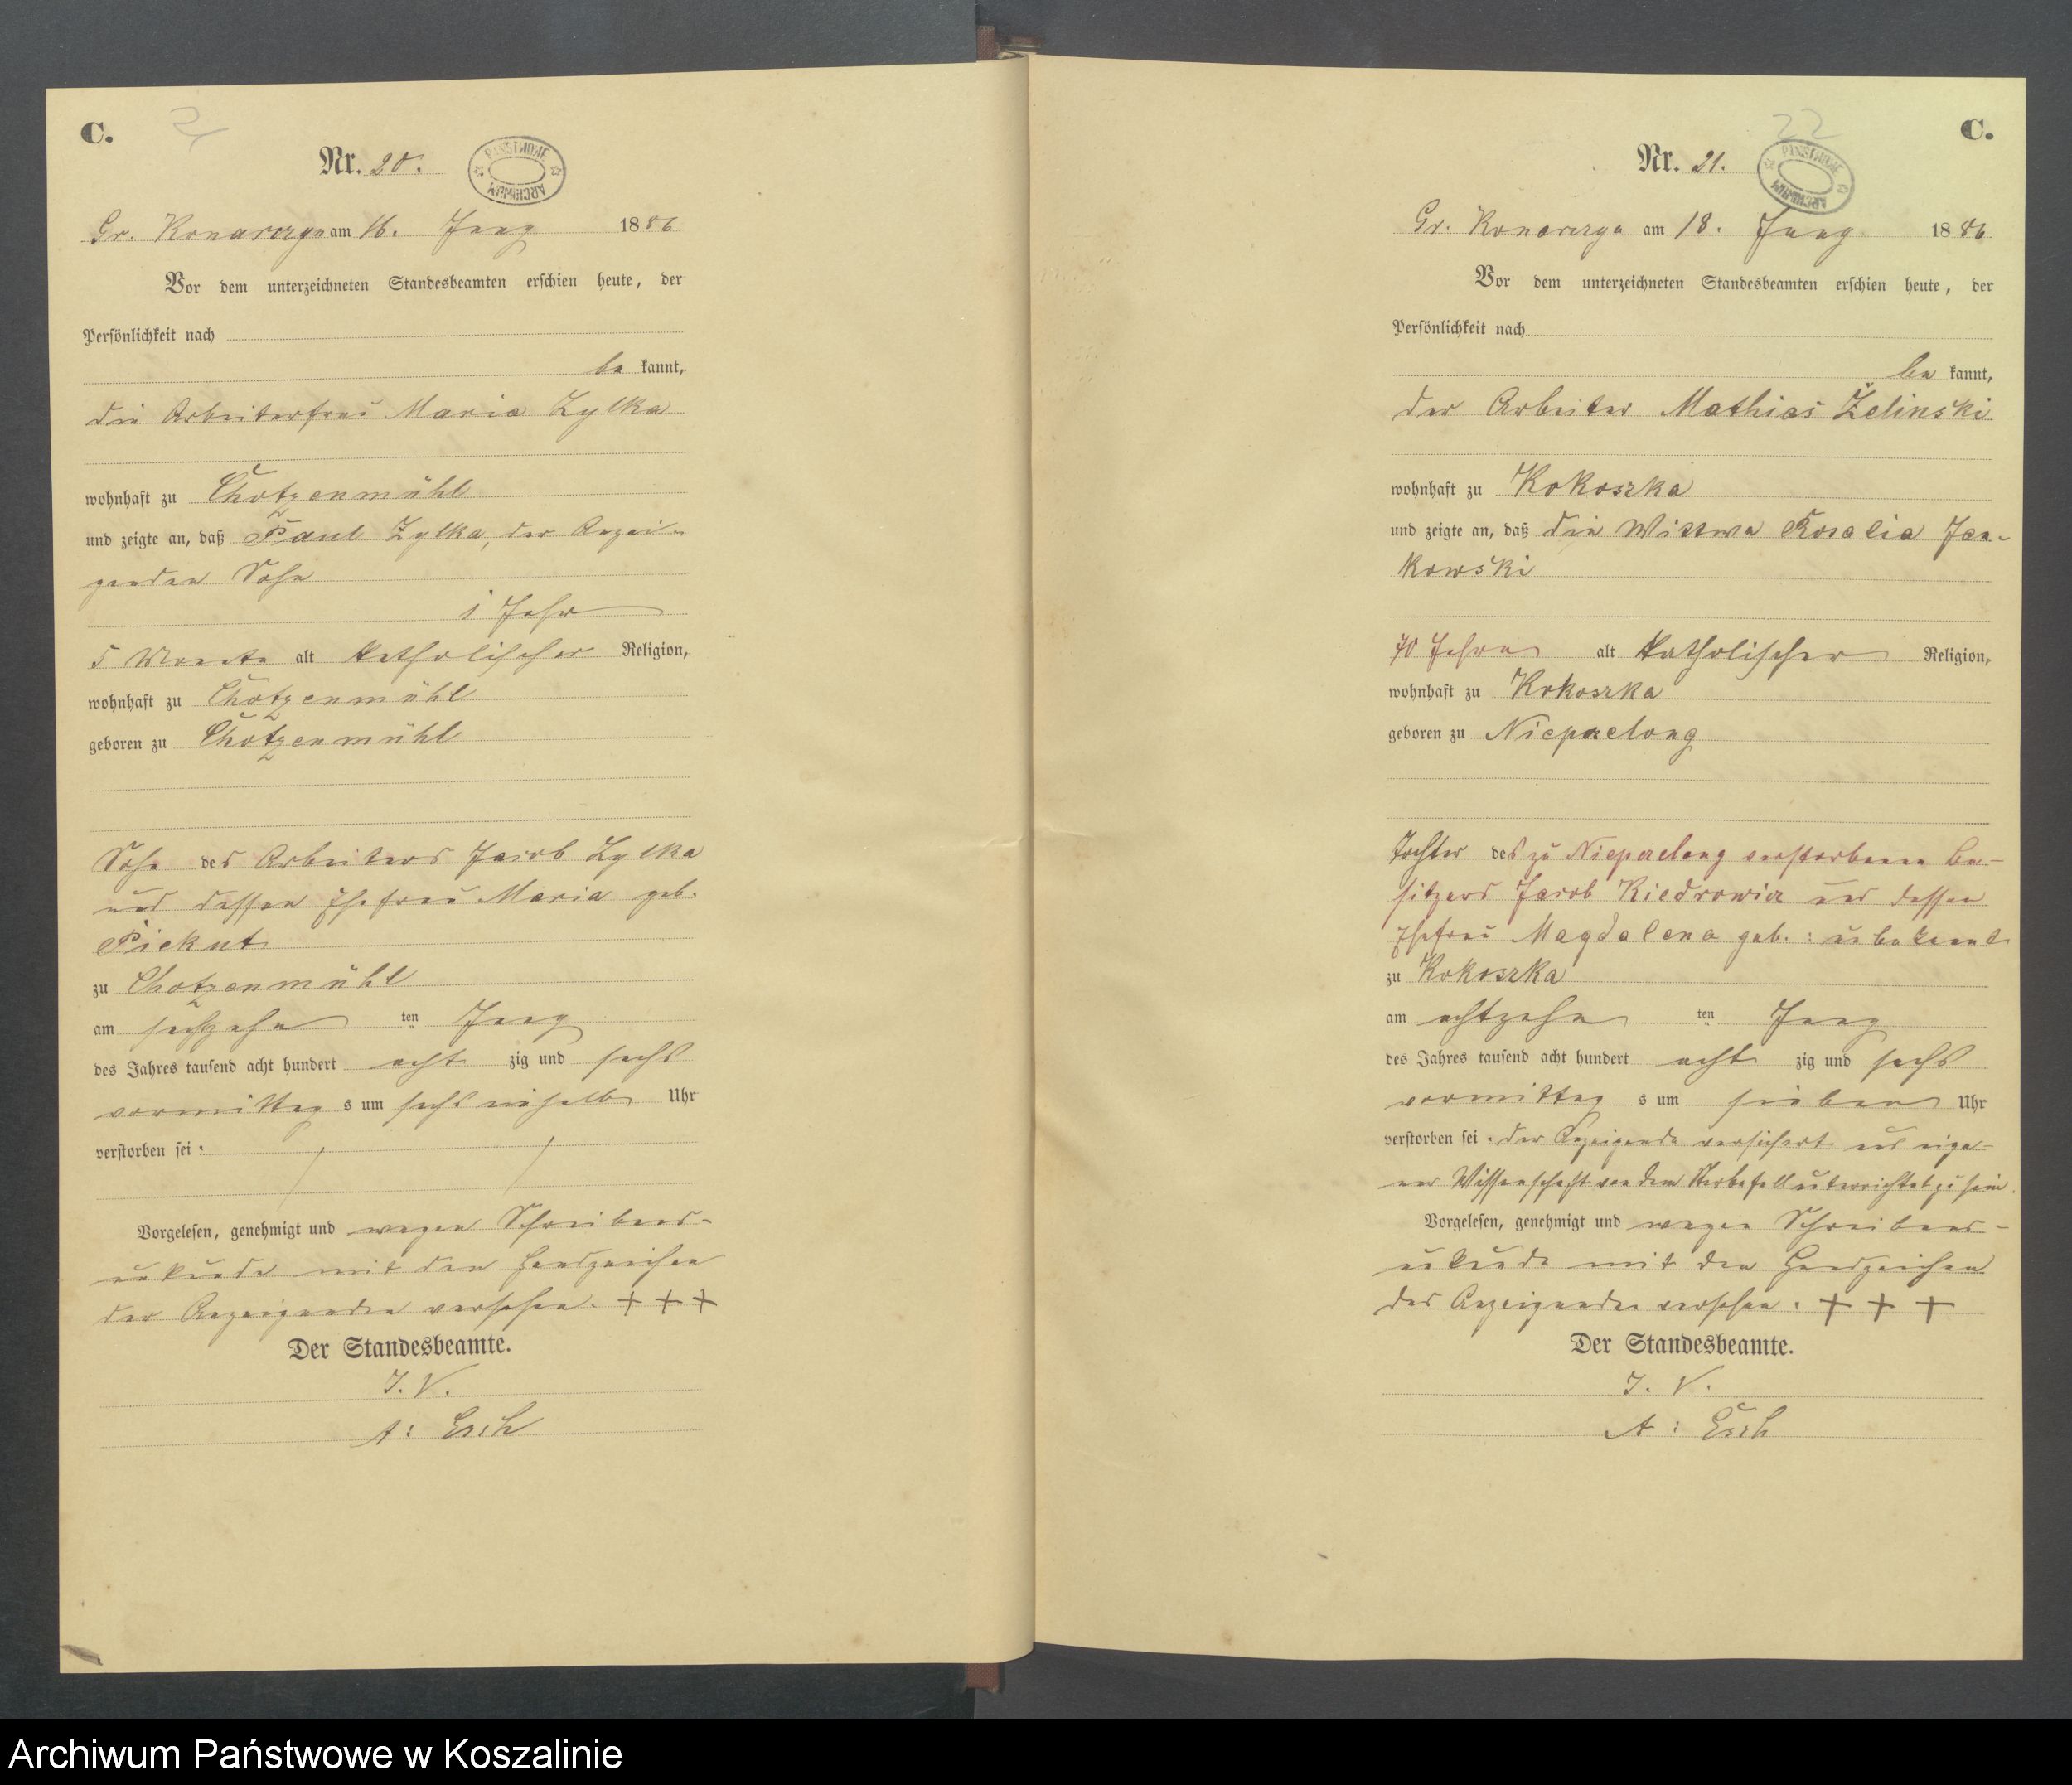 C.
21
Nr. 20.
PAŃSTWOWE ARCHIWUM
Gr. Konarczyn am 16. Juny 1886
Vor dem unterzeichneten Standesbeamten erschien heute, der
Persönlichkeit nach
be kannt,
die Arbeiterfrau Maria Zylka
wohnhaft zu Chotzenmühl
und zeigte an, daß Paul Zylka, der Anzei-
genden Sohn
1 Jahr
5 Monate alt katholischer Religion,
wohnhaft zu Chotzenmühl
geboren zu Chotzenmühl
Sohn des Arbeiters Jacob Zylka
und dessen Ehefrau Maria geb.
Piekut
zu Chotzenmühl
am sechzehn ten Juny
des Jahres tausend acht hundert acht zig und sechs
vormittag s um sechs einhalb Uhr
verstorben sei.
Vorgelesen, genehmigt und wegen Schreibens-
unkunde mit den Handzeichen
der Anzeigenden versehen. + + +
Der Standesbeamte.
J. V.
A: Esch
22
C.
Nr. 21.
PAŃSTWOWE ARCHIWUM
Gr. Konarczyn am 18. Juny 1886
Vor dem unterzeichneten Standesbeamten erschien heute, der
Persönlichkeit nach
be kannt,
der Arbeiter Mathias Zelinski
wohnhaft zu Kokoszka
und zeigte an, daß die Wittwe Rosalia Jan-
kowski
70 Jahre alt katholischer Religion,
wohnhaft zu Kokoszka
geboren zu
Tochter des zu verstorbenen Be-
sitzers Jacob Kiedrowicz und dessen
Ehefrau Magdalena geb.: unbekannt
zu Kokoszka
am achtzehn ten Juny
des Jahres tausend acht hundert acht zig und sechs
vormittag s um sieben Uhr
verstorben sei. der Anzeigende versichert aus eige-
ner Wissenschaft von dem Sterbefall unterrichtet zu sein.
Vorgelesen, genehmigt und wegen Schreibens-
unkunde mit den Handzeichen
des Anzeigenden versehen. + + +
Der Standesbeamte.
J. V.
A: Esch
Archiwum Państwowe w Koszalinie